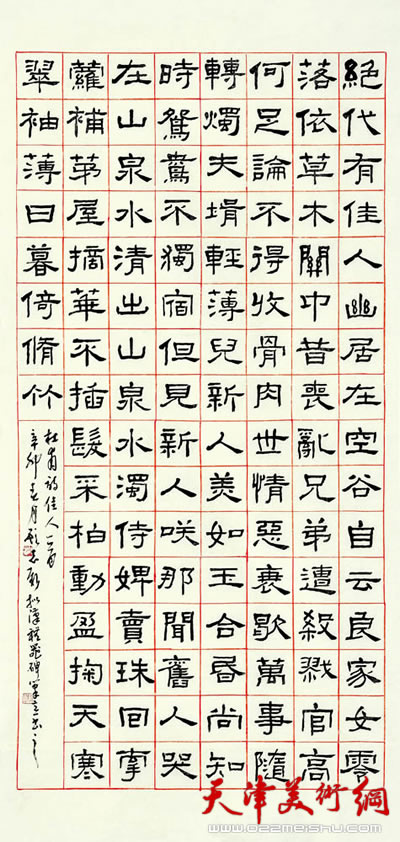 絕代有佳人幽居在空谷自云良家女零
落依草木關中昔喪亂兄弟遭殺戮官高
何足論不得收骨肉世情惡衰歇萬事隨
轉燭夫壻輕薄兒新人美如玉合昏尚知
時鴛鴦不獨宿但見新人咲那聞舊人哭
在山泉水清出山泉水濁侍婢賣珠回牽
蘿補茅屋摘華不插髮采柏動盈掬天寒
翠袖薄日暮倚脩竹
杜甫詩佳人一首
辛卯春月 拟漢禮器碑筆意書之
天津美術網
www.022meishu.com